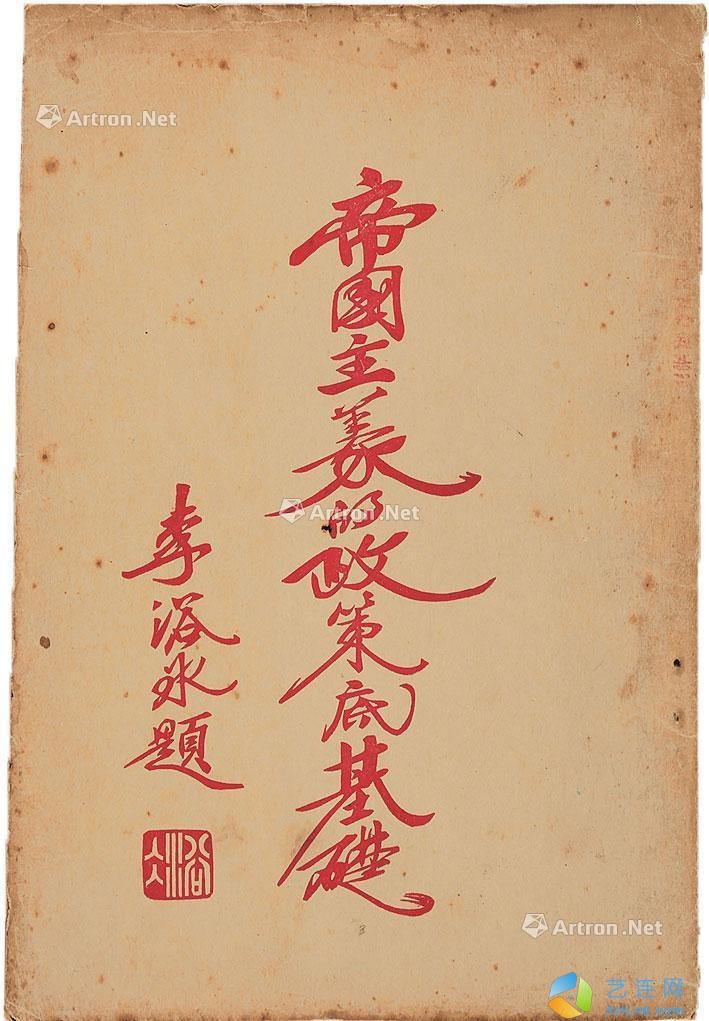 帝國主義的政策底基礎
李浴氷題
浴氷
Artron.Net
Artron.Net
Artron.Net
艺连网